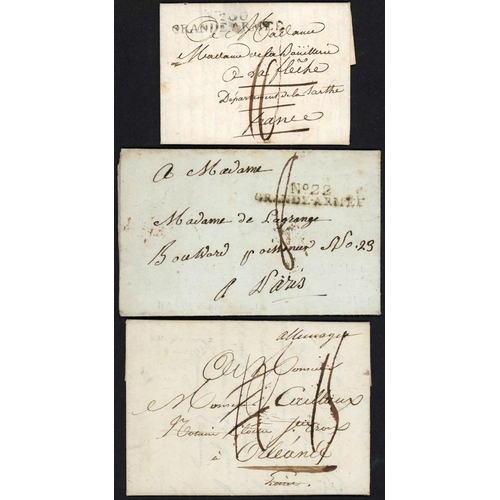 GRANDE-ARMÉE
A Madame
Madame de la Bouillerie
a la flêche
Département de la Sarthe
france
A Madame
No. 22
GRANDE-ARMÉE
Madame de Lagrange
Boulevard poissonier No. 23
A Paris
allemagne
A Monsieur
Monsieur Cailleaux
Notaire Cloitre Ste Croix
à Orléans
Loiret